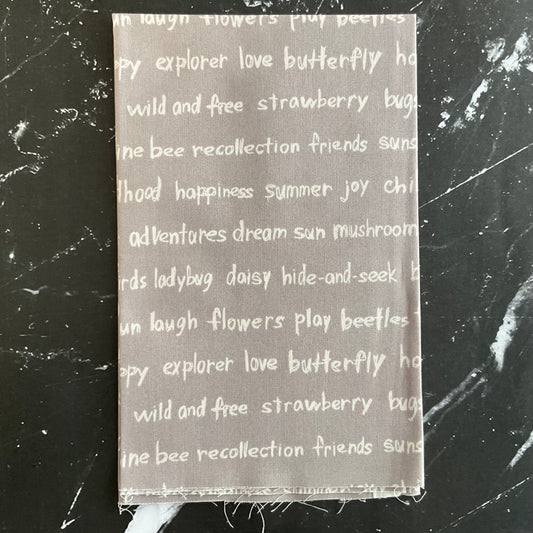 un laugh flowers play beetles
ppy explorer love butterfly ho
wild and free strawberry bugs
ine bee recollection friends suns
dhood happiness summer joy chi
adventures dream sun mushroom
irds ladybug daisy hide-and-seek b
un laugh flowers play beetles
ppy explorer love butterfly ho
wild and free strawberry bugs
ine bee recollection friends suns